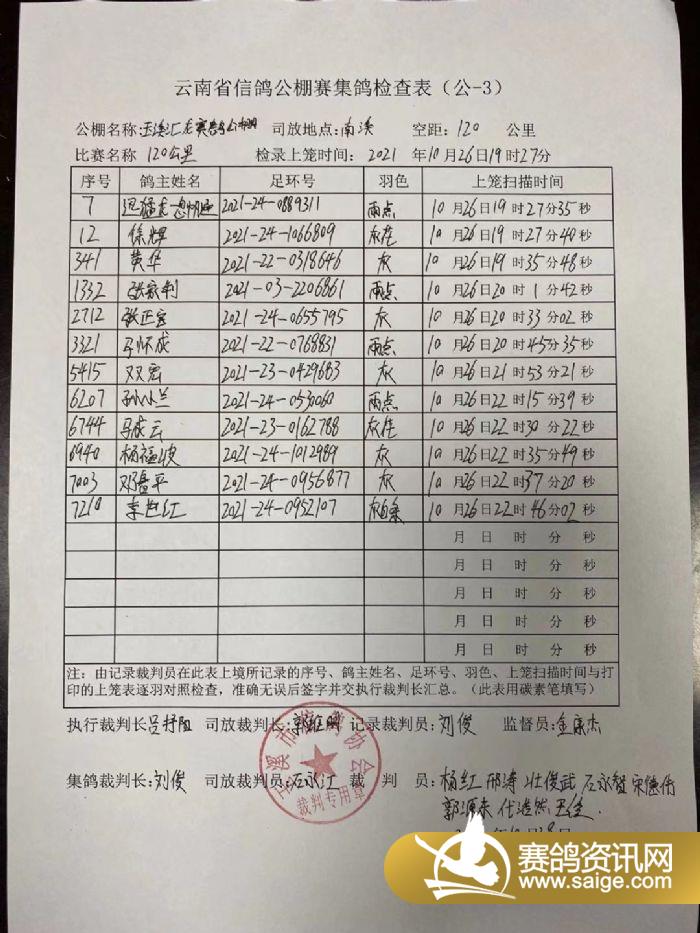 云南省信鸽公棚赛集鸽检查表（公-3）
公棚名称:玉溪汇龙赛鸽公棚 司放地点:南溪 空距:120 公里
比赛名称 120公里 检录上笼时间: 2021 年10月26日19时27分
序号 鸽主姓名 足环号 羽色 上笼扫描时间
7 2021-24-0889311 雨点 10月26日19时27分35秒
12 徐辉 2021-24-1066809 灰 10月26日19时27分40秒
341 黄华 2021-22-0318646 灰 10月26日19时35分48秒
1332 张家利 2021-03-2206861 雨点 10月26日20时1分42秒
2712 张正宏 2021-24-0655795 灰 10月26日20时33分02秒
3321 马怀成 2021-22-0768831 雨点 10月26日20时45分35秒
5415 双宏 2021-23-0429683 灰 10月26日21时53分21秒
6207 孙小兰 2021-24-0530060 雨点 10月26日22时15分39秒
6744 马成云 2021-23-0162788 灰 10月26日22时30分22秒
6940 杨福 2021-24-1012989 灰 10月26日22时35分49秒
7003 邓 平 2021-24-0956877 灰 10月26日22时37分20秒
7210 李 红 2021-24-0952107 10月26日22时46分02秒
月 日 时 分 秒
月 日 时 分 秒
月 日 时 分 秒
月 日 时 分 秒
月 日 时 分 秒
注：由记录裁判员在此表上境所记录的序号、鸽主姓名、足环号、羽色、上笼扫描时间与打
印的上笼表逐羽对照检查，准确无误后签字并交执行裁判长汇总。（此表用碳素笔填写）
执行裁判长: 司放裁判长: 记录裁判员:刘俊 监督员:金康杰
集鸽裁判长:刘俊 司放裁判员:石永江 裁 判 员: 杨红 邢涛 杜俊武 石永智 宋德伟
郭源东
玉溪市信鸽协会
裁判专用章
赛鸽资讯网
www.saige.com